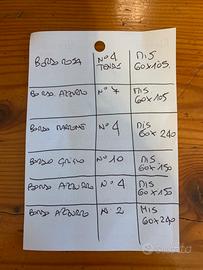 BORDO ROSA N° 4 TENDE MIS 60X105
BORDO AZZURRO N° 4 MIS 60X105
BORDO MARRONE N° 4 MIS 60X240
BORDO GRIGIO N° 10 MIS 60X150
BORDO AZZURRO N° 4 MIS 60X150
BORDO AZZURRO N 2 MIS 60X240
subito